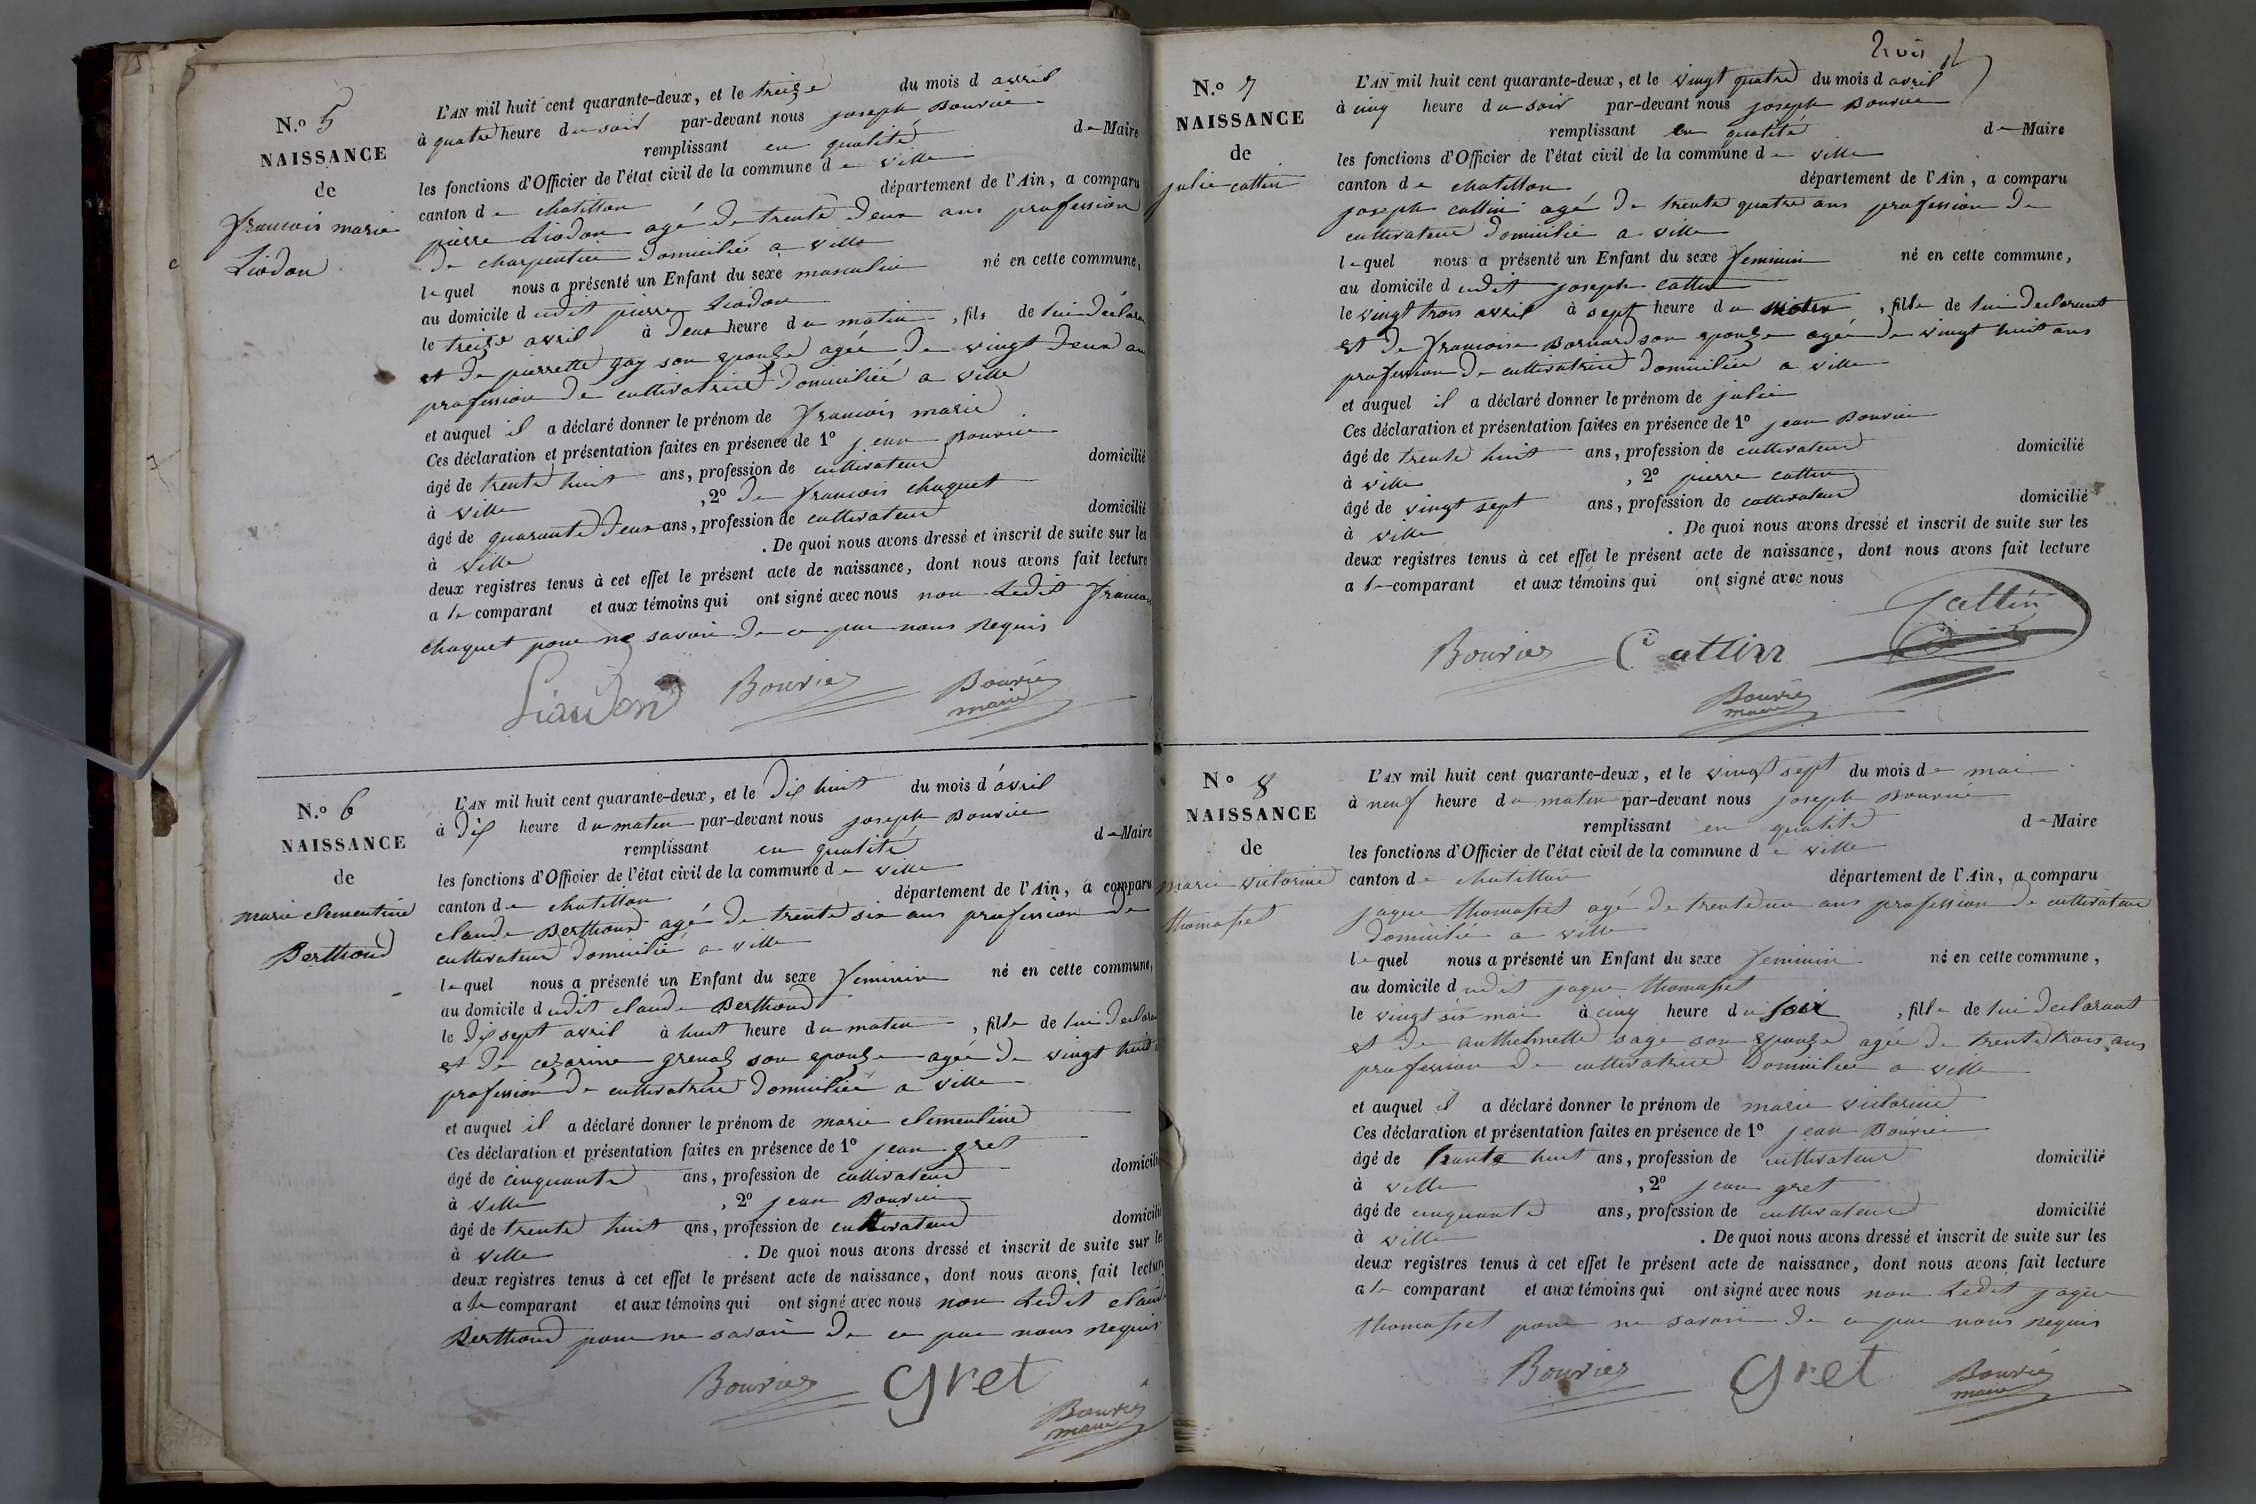 N.º 5
NAISSANCE
de
francois marie
Liodon
L'AN mil huit cent quarante-deux, et le treize du mois d avril
à quatre heure du soir par-devant nous joseph Bouvier
remplissant en qualité de Maire
les fonctions d'Officier de l'état civil de la commune de ville
canton de chatillon département de l'Ain, a comparu
pierre Liodon agé de trente deux ans profession
de charpentier domicilié a ville
lequel nous a présenté un Enfant du sexe masculin né en cette commune,
au domicile dudit pierre Liodon
le treize avril à deux heure du matin, fils de lui déclara
et de pierrette gay son epouze agée de vingt deux an
profession de cultivatrice domiciliée a ville
et auquel il a déclaré donner le prénom de francois marie
Ces déclaration et présentation faites en présence de 1º jean Bouvier
âgé de trente huit ans, profession de cultivateur domicilié
à ville, 2º de francois chaquet
âgé de quarante deux ans, profession de cultivateur domicilié
à ville. De quoi nous avons dressé et inscrit de suite sur les
deux registres tenus à cet effet le présent acte de naissance, dont nous avons fait lecture
a le comparant et aux témoins qui ont signé avec nous non Ledit francois
chaquet pour ne savoir de ce par nous Requis
Liaudon Bouvier Bouvier
maire
N.º 6
NAISSANCE
de
marie clementine
Berthoud
L'AN mil huit cent quarante-deux, et le dix huit du mois d'avril
à dix heure du matin par-devant nous joseph Bouvier
remplissant en qualité de Maire
les fonctions d'Officier de l'état civil de la commune de ville
canton de chatillon département de l'Ain, a comparu
claude Berthoud agé de trente six ans profession de
cultivateur domicilié a ville
lequel nous a présenté un Enfant du sexe feminin né en cette commune,
au domicile dudit claude Berthoud
le dix sept avril à huit heure du matin, fille de lui declara
et de cezarine grenaz son epouze agée de vingt huit
profession de cultivatrice domiciliée a ville
et auquel il a déclaré donner le prénom de marie clementine
Ces déclaration et présentation faites en présence de 1º jean gret
âgé de cinquante ans, profession de cultivateur domicilié
à ville, 2º jean Bouvier
âgé de trente huit ans, profession de cultivateur domicilié
à ville. De quoi nous avons dressé et inscrit de suite sur les
deux registres tenus à cet effet le présent acte de naissance, dont nous avons fait lecture
a le comparant et aux témoins qui ont signé avec nous non Ledit claude
Berthoud pour ne savoir de ce par nous Requis
Bouvier gret Bouvier
maire
N.º 7
NAISSANCE
de
julie cattin
L'AN mil huit cent quarante-deux, et le vingt quatre du mois d avril
à cinq heure du soir par-devant nous joseph Bouvier
remplissant en qualité de Maire
les fonctions d'Officier de l'état civil de la commune de ville
canton de chatillon département de l'Ain, a comparu
joseph cattin agé de trente quatre ans profession de
cultivateur domicilié a ville
lequel nous a présenté un Enfant du sexe feminin né en cette commune,
au domicile dudit joseph cattin
le vingt trois avril à sept heure du matin, fille de lui declarant
et de francoise Bornard son epouze agée de vingt huit ans
profession de cultivatrice domiciliée a ville
et auquel il a déclaré donner le prénom de julie
Ces déclaration et présentation faites en présence de 1º jean Bouvier
âgé de trente huit ans, profession de cultivateur domicilié
à ville, 2º pierre cattin
âgé de vingt sept ans, profession de cultivateur domicilié
à ville. De quoi nous avons dressé et inscrit de suite sur les
deux registres tenus à cet effet le présent acte de naissance, dont nous avons fait lecture
a le comparant et aux témoins qui ont signé avec nous
Bouvier Cattin Cattin
Bouvier
maire
N.º 8
NAISSANCE
de
marie victorine
thomasset
L'AN mil huit cent quarante-deux, et le vingt sept du mois de mai
à neuf heure du matin par-devant nous joseph Bouvier
remplissant en qualité de Maire
les fonctions d'Officier de l'état civil de la commune de ville
canton de chatillon département de l'Ain, a comparu
jaque thomasset agé de trente un ans profession de cultivateur
domicilié a ville
lequel nous a présenté un Enfant du sexe feminin né en cette commune,
au domicile dudit jaque thomasset
le vingt six mai à cinq heure du soir, fille de lui declarant
et de anthelmette sage son epouze agée de trente trois ans
profession de cultivatrice domiciliée a ville
et auquel il a déclaré donner le prénom de marie victorine
Ces déclaration et présentation faites en présence de 1º jean Bouvier
âgé de trente huit ans, profession de cultivateur domicilié
à ville, 2º jean gret
âgé de cinquante ans, profession de cultivateur domicilié
à ville. De quoi nous avons dressé et inscrit de suite sur les
deux registres tenus à cet effet le présent acte de naissance, dont nous avons fait lecture
a le comparant et aux témoins qui ont signé avec nous non Ledit jaque
thomasset pour ne savoir de ce par nous Requis
Bouvier gret Bouvier
maire